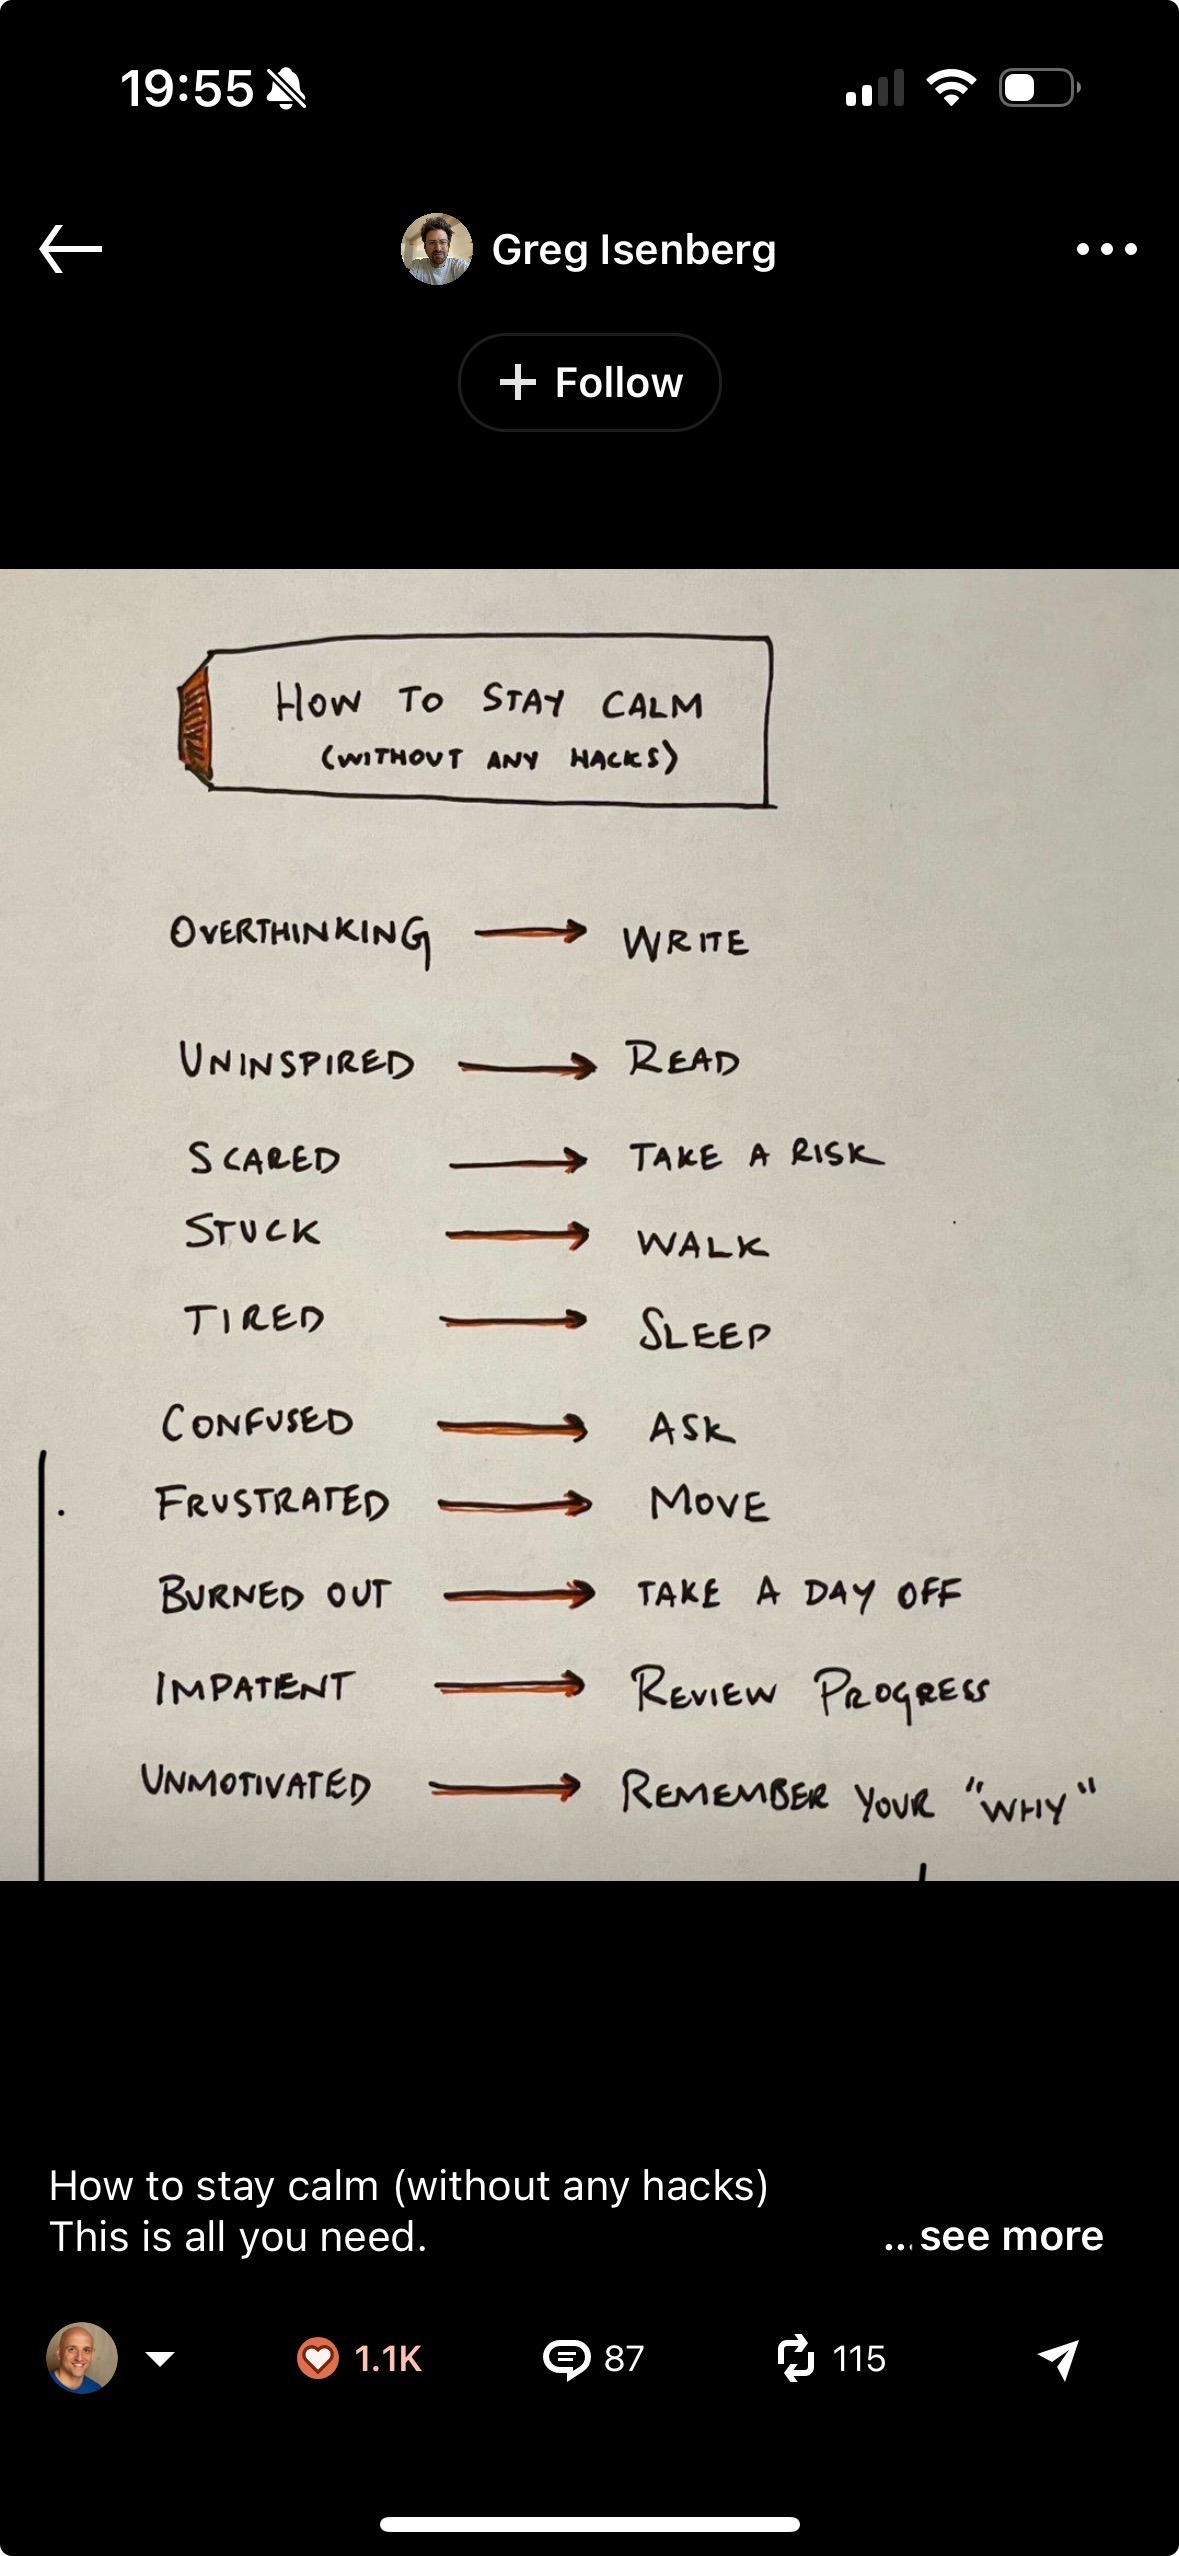 19:55
Greg Isenberg
+ Follow
HOW TO STAY CALM
(WITHOUT ANY HACKS)
OVERTHINKING → WRITE
UNINSPIRED → READ
SCARED → TAKE A RISK
STUCK → WALK
TIRED → SLEEP
CONFUSED → ASK
FRUSTRATED → MOVE
BURNED OUT → TAKE A DAY OFF
IMPATIENT → REVIEW PROGRESS
UNMOTIVATED → REMEMBER YOUR "WHY"
How to stay calm (without any hacks)
This is all you need. ...see more
1.1K 87 115